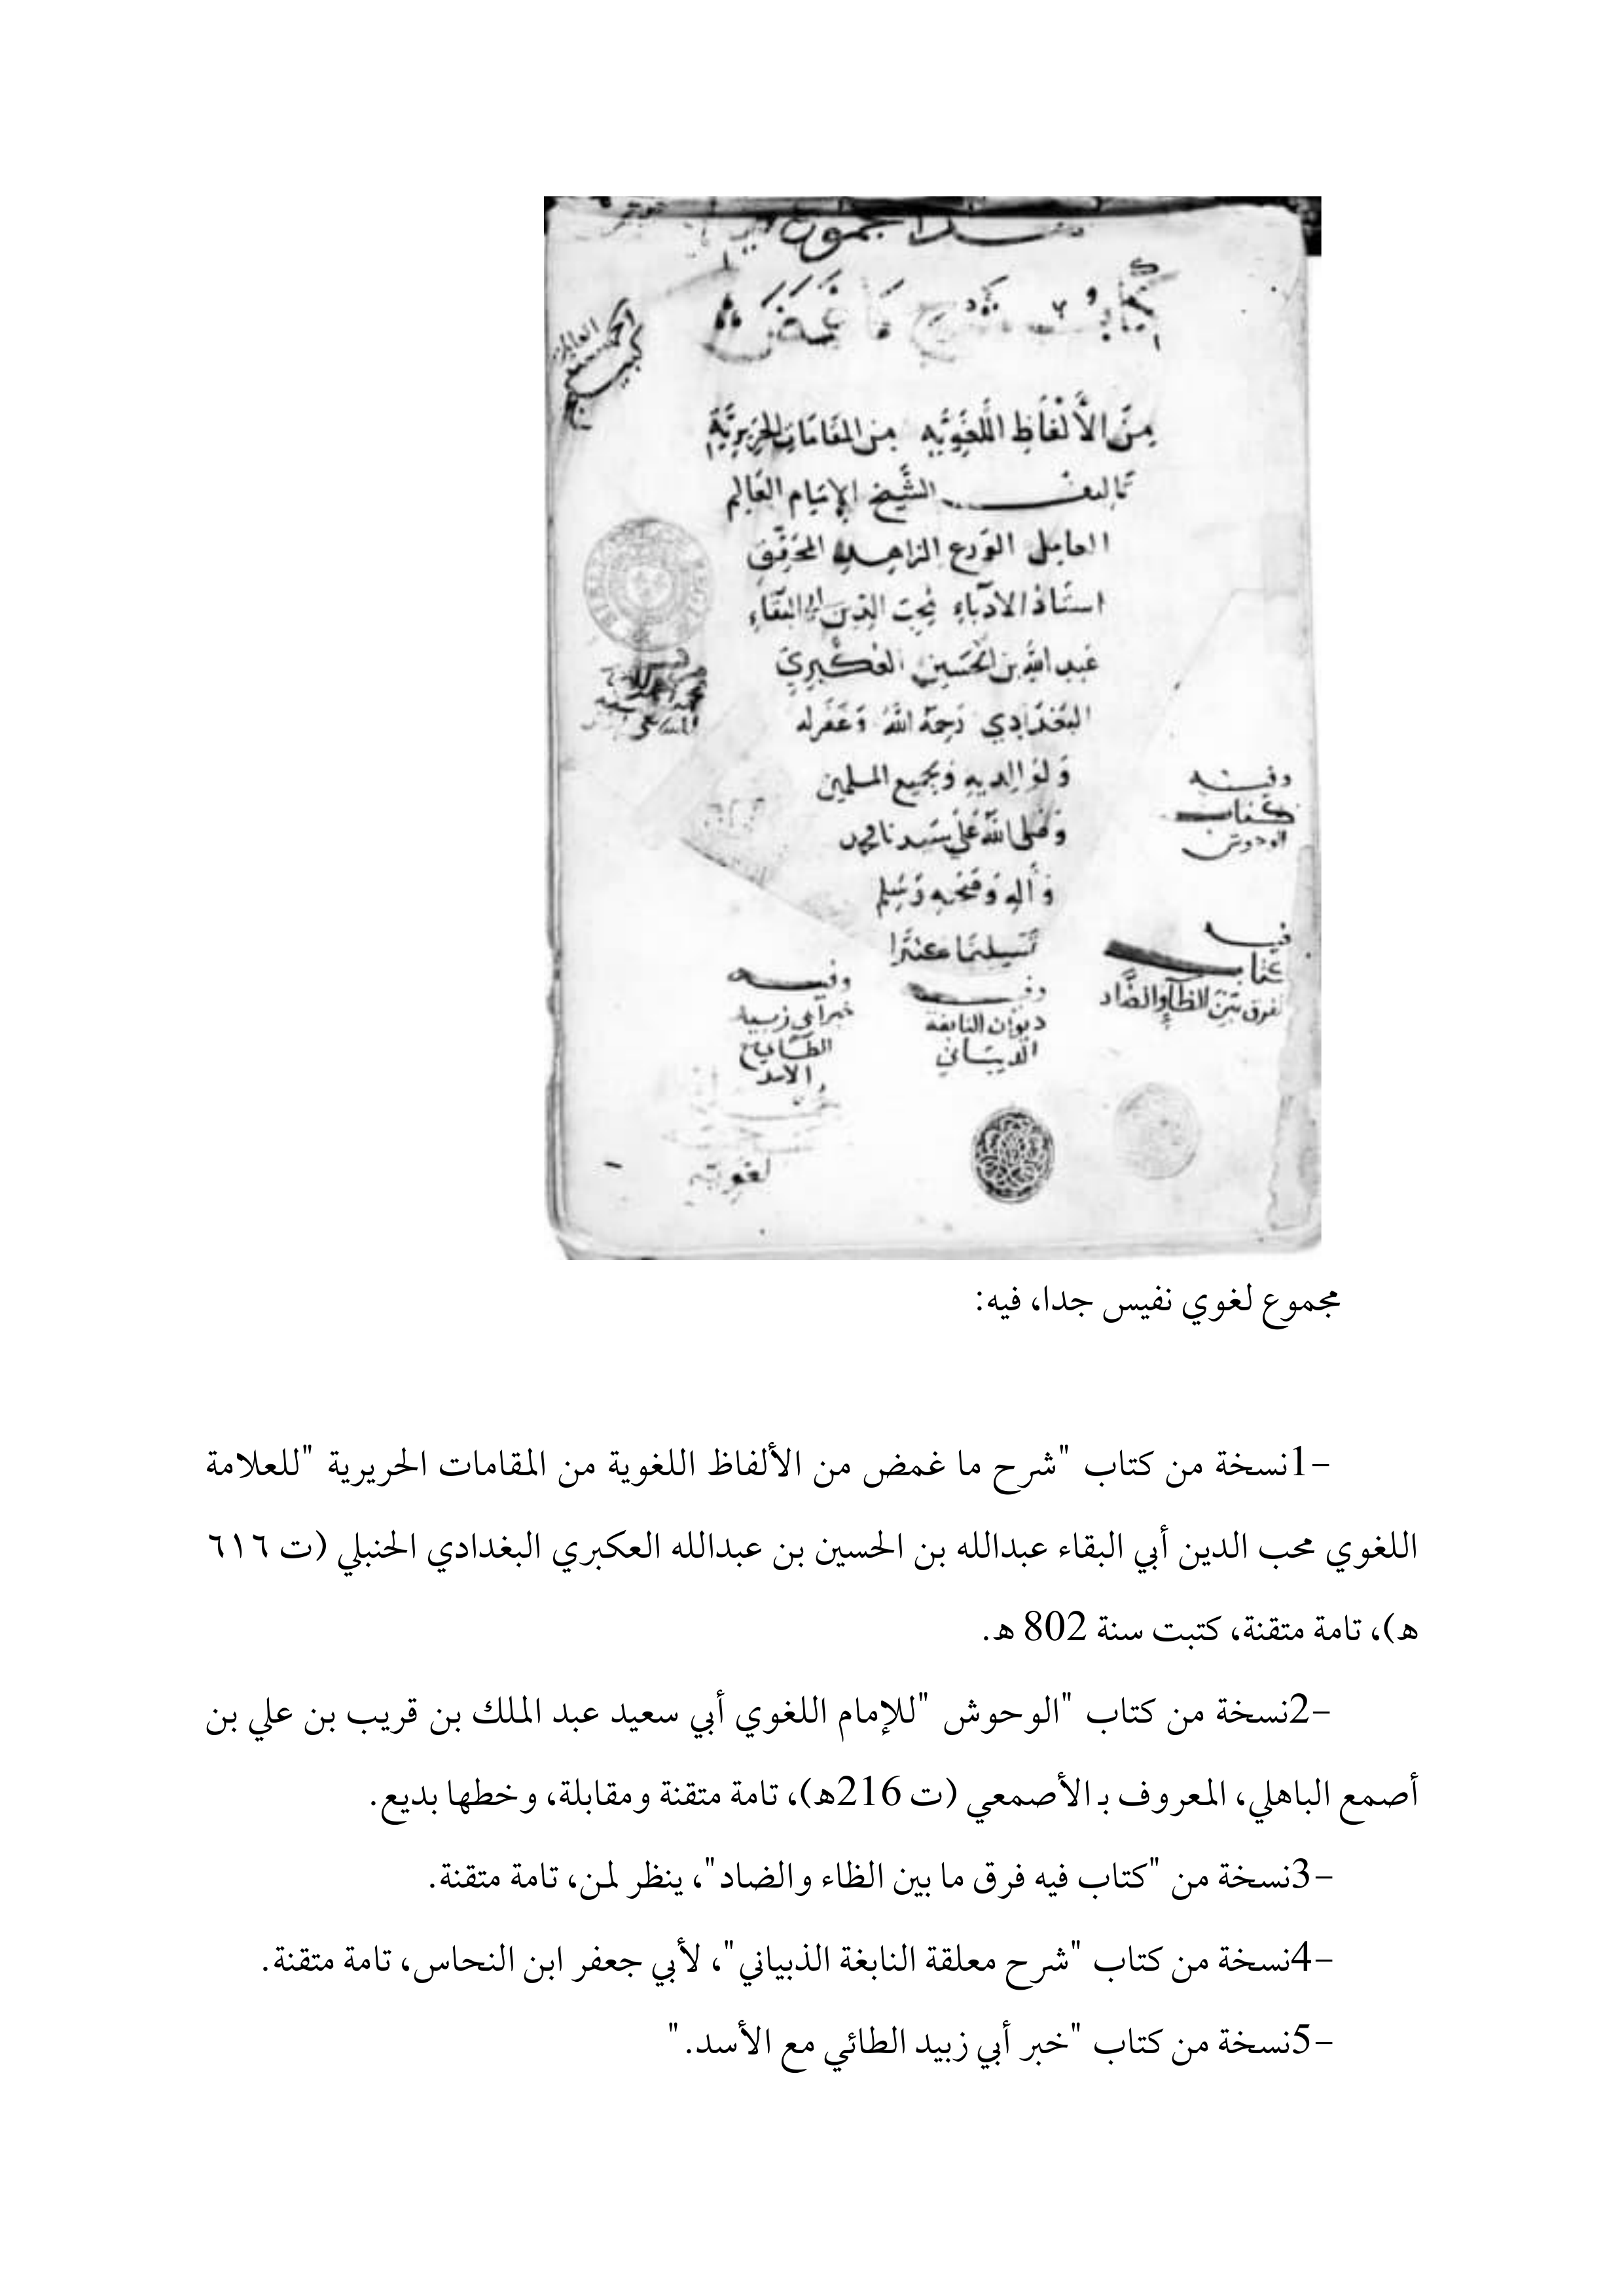 كتاب شرح ما غمض
من الألفاظ اللغويه من المقامات الحريرية
تأليف الشيخ الإمام العالم
العامل الورع الزاهد المحقق
استاذ الادباء محب الدين ابى البقاء
عبد الله بن الحسين العكبري
البغدادي رحمه الله وغفر له
ولوالديه ولجميع المسلمين
وصلى الله على سيدنا محمد
وأله وصحبه وسلم
تسليما كثيرا
وفيه
كتاب
الوحوش
فيه
كتاب
فرق بين الظاء والضاد
وفيه
ديوان النابغة
الذبياني
وفيه
خبر أبي زبيد
الطائي مع
الاسد
لغوية
مجموع لغوي نفيس جدا، فيه:
-1نسخة من كتاب "شرح ما غمض من الألفاظ اللغوية من المقامات الحريرية "للعلامة
اللغوي محب الدين أبي البقاء عبدالله بن الحسين بن عبدالله العكبري البغدادي الحنبلي (ت ٦١٦
ه)، تامة متقنة، كتبت سنة 802 ه.
-2نسخة من كتاب "الوحوش "للإمام اللغوي أبي سعيد عبد الملك بن قريب بن علي بن
أصمع الباهلي، المعروف بـ الأصمعي (ت 216ه)، تامة متقنة ومقابلة، وخطها بديع.
-3نسخة من "كتاب فيه فرق ما بين الظاء والضاد"، ينظر لمن، تامة متقنة.
-4نسخة من كتاب "شرح معلقة النابغة الذبياني"، لأبي جعفر ابن النحاس، تامة متقنة.
-5نسخة من كتاب "خبر أبي زبيد الطائي مع الأسد."